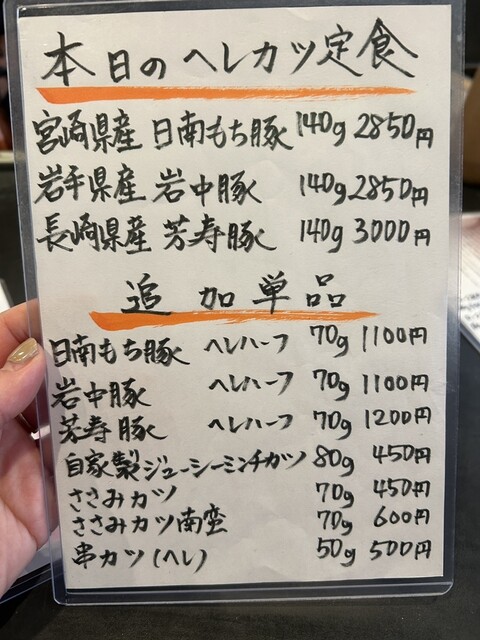 本日のヘレカツ定食
宮崎県産 日南もち豚 140g 2850円
岩手県産 岩中豚 140g 2850円
長崎県産 芳寿豚 140g 3000円
追加単品
日南もち豚 ヘレハーフ 70g 1100円
岩中豚 ヘレハーフ 70g 1100円
芳寿豚 ヘレハーフ 70g 1200円
自家製ジューシーミンチカツ 80g 450円
ささみカツ 70g 450円
ささみカツ南蛮 70g 600円
串カツ(ヘレ) 50g 500円